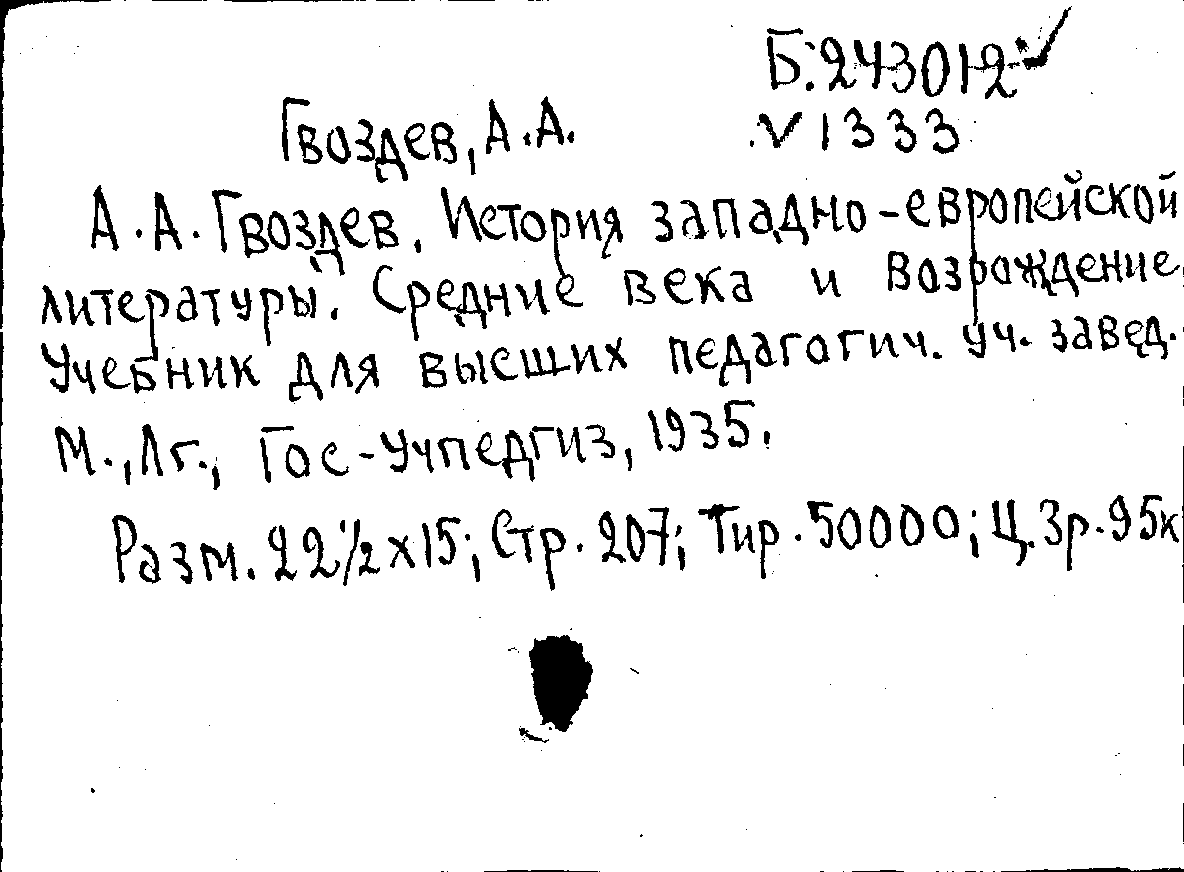 Б:243012 ✓
Гвоздев, А.А.
√ 1333
А.А. Гвоздев. История западно-европейской
литературы. Средние века и Возрождение.
Учебник для высших педагогич. уч. завед.
М., Лг., Гос-Учпедгиз, 1935.
Разм. 22 1/2 x 15; Стр. 207; Тир. 50000; Ц. 3р. 95к